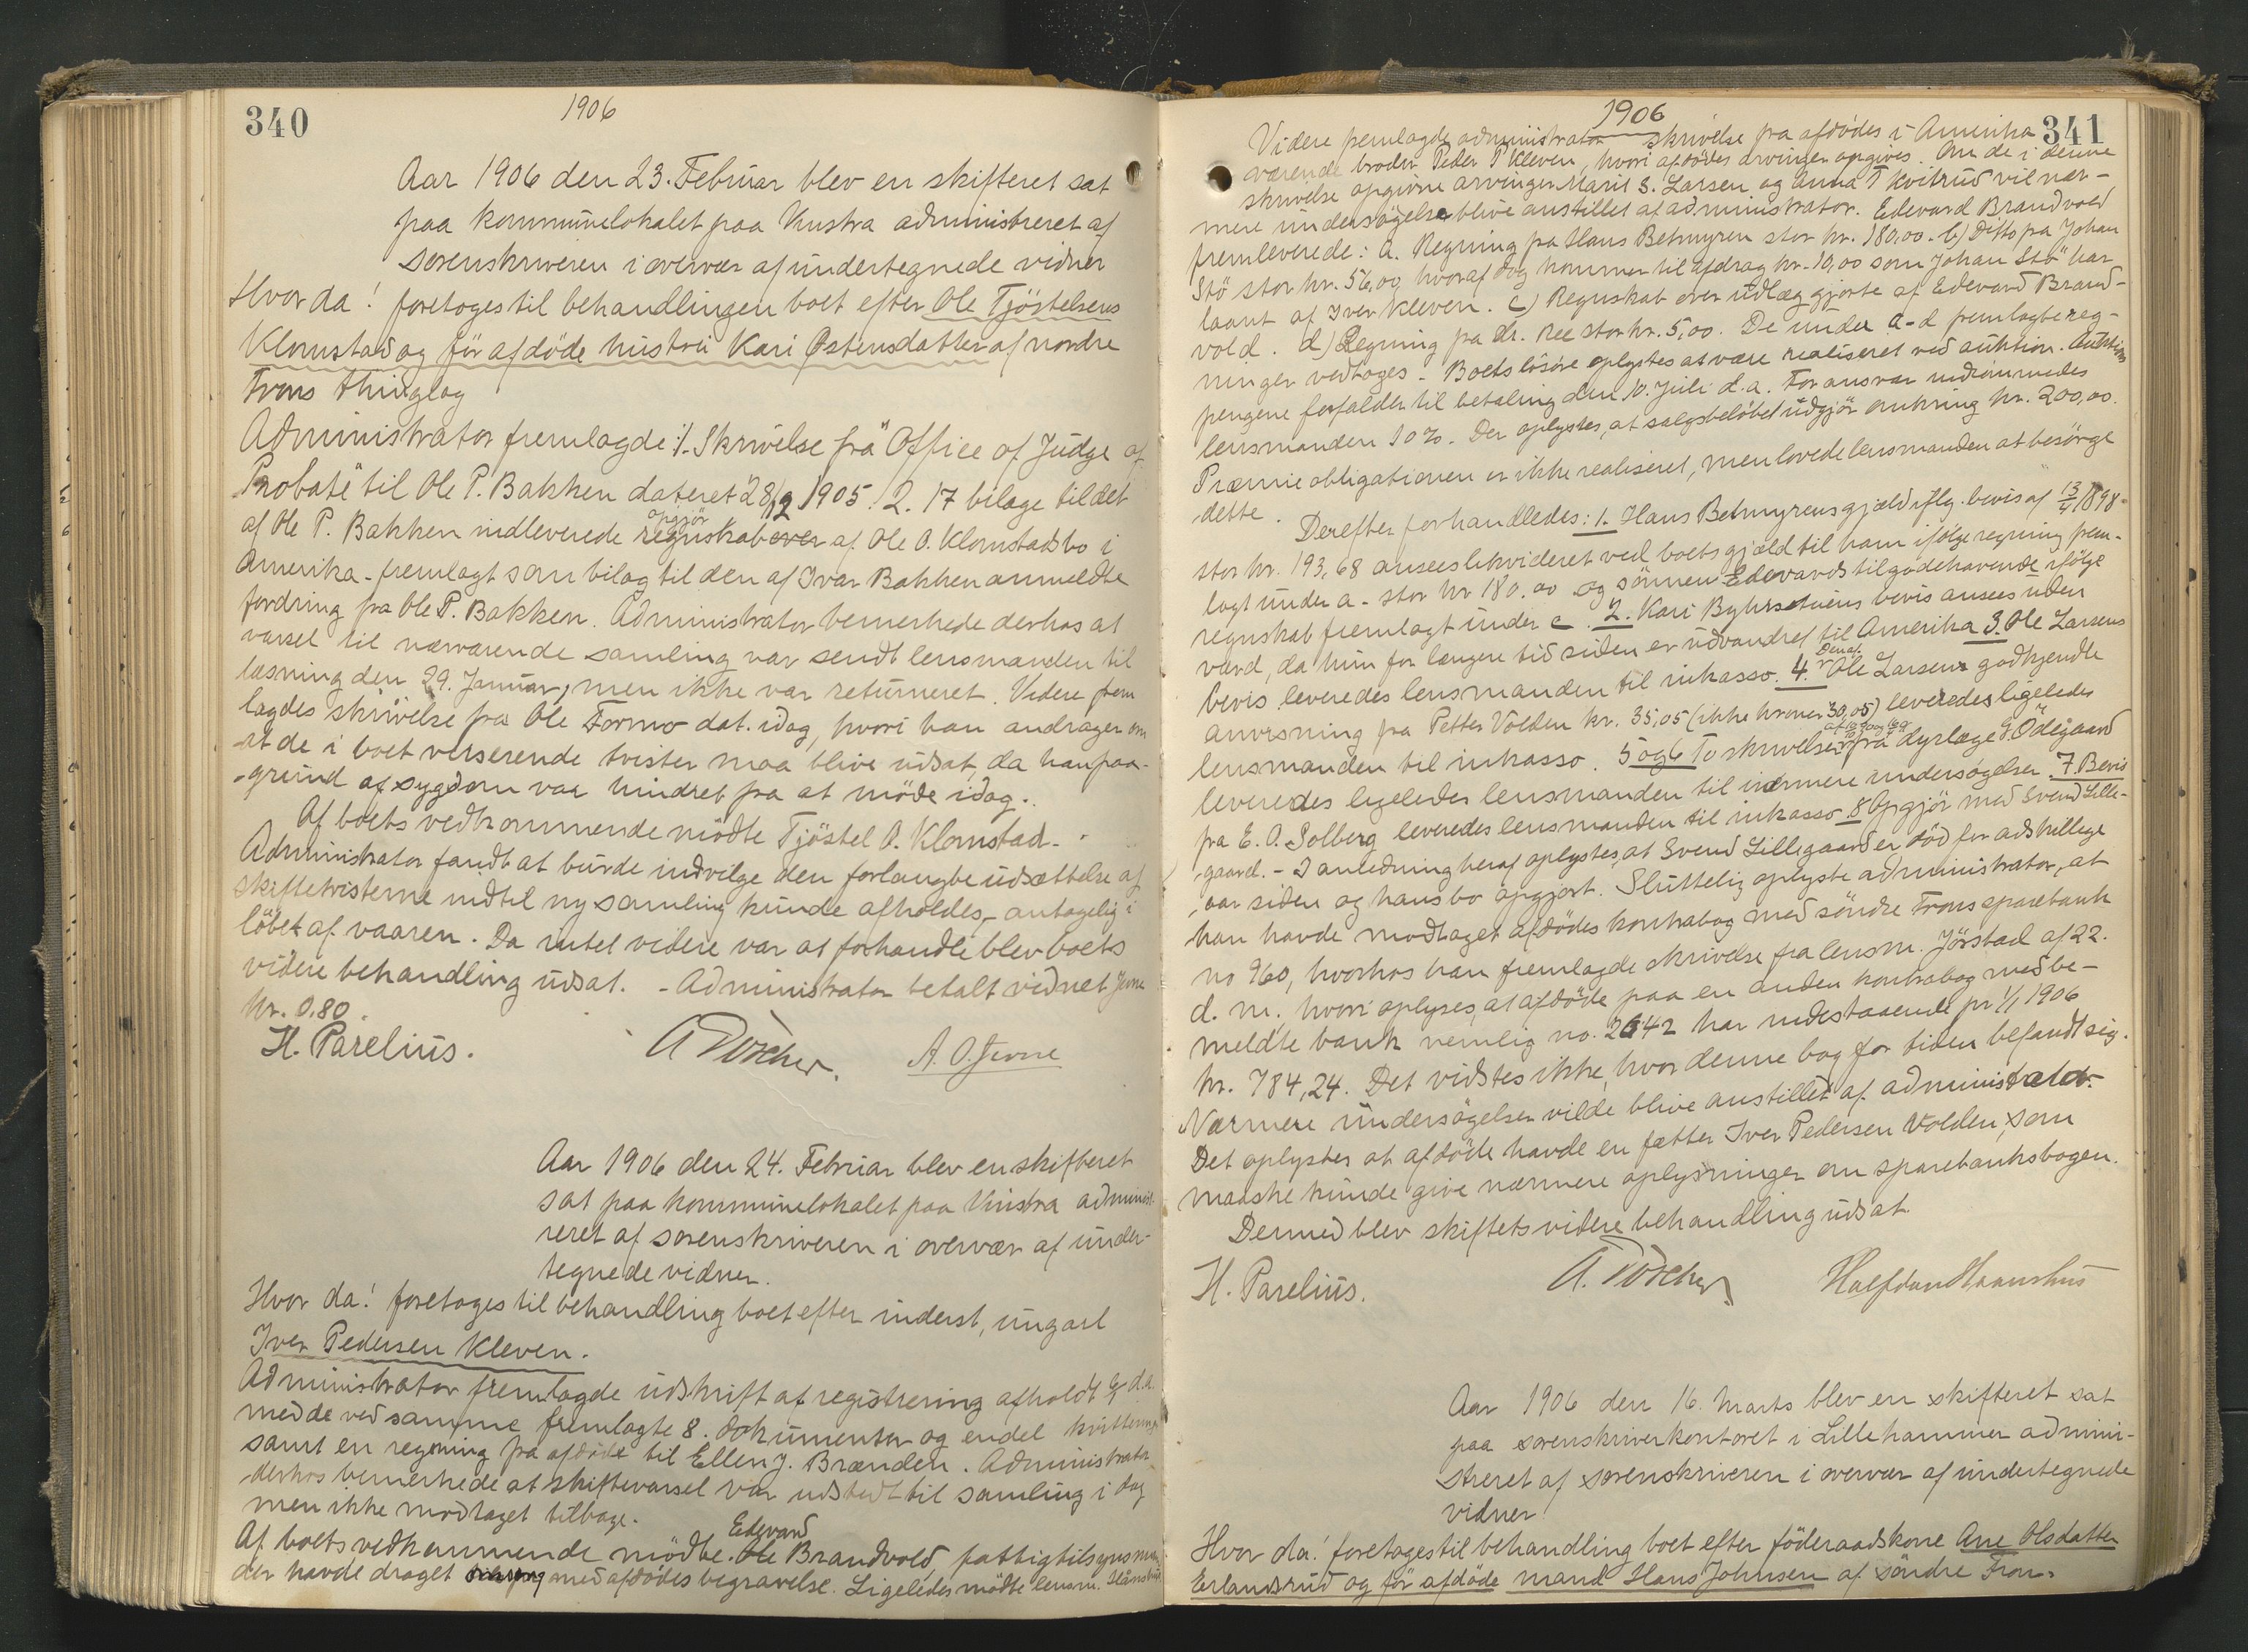 340
1906
Aar 1906 den 23. Februar blev en skifteret sat
paa kommunelokalet paa Vinstra administreret af
sorenskriveren i overvær af undertegnede vidner
Hvor da! foretoges til behandlingen boet efter Ole Tjöstelsens
Klomstad og för afdöde hustru Kari Østensdatter af nordre
Frons thinglag
Administrator fremlagde: 1. Skrivelse fra "Office of Judge of
Probate" til Ole P. Bakken dateret 28/12 1905. 2. 17 bilage til det
af Ole P. Bakken indleverede regnskab over opgjör af Ole O. Klomstads bo i
Amerika - fremlagt som bilag til den af Ivar Bakken anmeldte
fordring fra Ole P. Bakken. Administrator bemerkede derhos at
varsel til nærværende samling var sendt lensmanden til
læsning den 29. Januar, men ikke var returneret. Videre frem
lagdes skrivelse fra Ole Formo dat. idag, hvori han andrager om
at de i boet verserende tvister maa blive udsat, da han paa
grund af sygdom var hindret fra at möde idag.
Af boets vedkommende mödte Tjöstel O. Klomstad.
Administrator fandt at burde indvilge den forlangte udsættelse af
skiftetvisterne indtil ny samling kunde afholdes, - antagelig i
löbet af vaaren. Da intet videre var at forhandle blev boets
videre behandling udsat. - Administrator betalt vidnet Jevne
kr. 0.80.
H. Parelius.
A. O. Jevne
Aar 1906 den 24. Februar blev en skifteret
sat paa kommunelokalet paa Vinstra administ-
reret af sorenskriveren i overvær af under-
tegnede vidner.
Hvor da! foretoges til behandling boet efter inderst, ungkarl
Iver Pedersen Kleven.
Administrator fremlagde udskrift af registrering afholdt d.a.
med de ved samme fremlagte 8. dokumenter og endel kvitteringer
samt en regning fra afdöde til Ellen J. Brænden. Administrator
derhos bemerkede at skiftevarsel var udstedt til samling i dag
men ikke modtaget tilbage.
Af boets vedkommende mödte Ole Edevard Brandvold, fattigtilsynsman
der havde draget omsorg med afdödes begravelse. Ligeledes mödte lensm.
1906
341
Videre fremlagde administrator skrivelse fra afdödes i Amerika
værende broder Peder P. Kleven, hvori afdödes arvinger opgives. Om de i denne
skrivelse opgivne arvinger Marit S. Larsen og Anna T. Kvitrud vil nær-
mere undersögelse blive anstillet af administrator. Edevard Brandvold
fremleverede: a. Regning fra Hans Betmyren stor kr. 180,00. b) Ditto fra Johan
Stö stor kr. 56,00 hvoraf dog kommer til afdrag kr. 10,00 som Johan Stö har
laant af Iver Kleven. c) Regnskab over udlæg gjorte af Edevard Brand-
vold. d) Regning fra dr. Ree stor kr. 5,00. De under a-d fremlagte reg-
ninger vedtoges. - Boets lösöre oplystes at være realiseret ved auktion. Auktions
pengene forfalder til betaling den 10. Juli d.a. For ansvar indrömmedes
lensmanden 10%. Der oplystes, at salgsbelöbet udgjör omkring kr. 200,00.
Præmieobligationen er ikke realiseret, men lovede lensmanden at besörge
dette.
Derefter forhandledes: 1. Hans Betmyrens gjæld iflg. bevis af 13/4 1898
stor kr. 193,68 ansees likvideret ved boets gjæld til ham ifölge regning frem-
lagt under a - stor kr 180.00 og sönnen Edevards tilgodehavende ifölge
regnskab fremlagt under c. 2. Kari Byhrstuens bevis ansees uden
værd, da hun for længere tid siden er udvandret til Amerika 3. Ole Larsens
bevis leveredes lensmanden til inkasso. 4. Den af Ole Larsen godkjendte
anvisning fra Petter Volden kr. 35,05 (ikke kroner 30,05) leveredes ligeledes
lensmanden til inkasso. 5 og 6 To skrivelser fra dyrlæge G. Ödegaard
leveredes ligeledes lensmanden til nærmere undersögelse. 7. Bevis
fra E. O. Solberg leveredes lensmanden til inkasso 8 Opgjör med Svend Lille-
gaard. - I anledning heraf oplystes, at Svend Lillegaard er död for adskillige
aar siden og hans bo opgjort. Sluttelig oplyste administrator, at
han havde modtaget afdödes kontrabog med söndre Frons sparebank
no 960, hvorhos han fremlagde skrivelse fra lensm. Jörstad af 22.
d. m., hvori oplyses, at afdöde paa en anden kontrabog med be-
meldte bank nemlig no. 2642 har indestaaende pr 1/1 1906
kr. 784,24. Det vidstes ikke, hvor denne bog for tiden befandt sig.
Nærmere undersögelser vilde blive anstillet af administrator.
Det oplystes at afdöde havde en fætter Iver Pedersen Volden, som
maaske kunde give nærmere oplysninger om sparebanksbogen.
Dermed blev skiftets videre behandling udsat.
H. Parelius.
Halfdan Haanshus
Aar 1906 den 16. Marts blev en skifteret sat
paa sorenskriverkontoret i Lillehammer admini-
streret af sorenskriveren i overvær af undertegnede
vidner
Hvor da! foretoges til behandling boet efter föderaadskone Ane Olsdatter
Erlandsrud og för afdöde mand Hans Johnsen af söndre Fron.